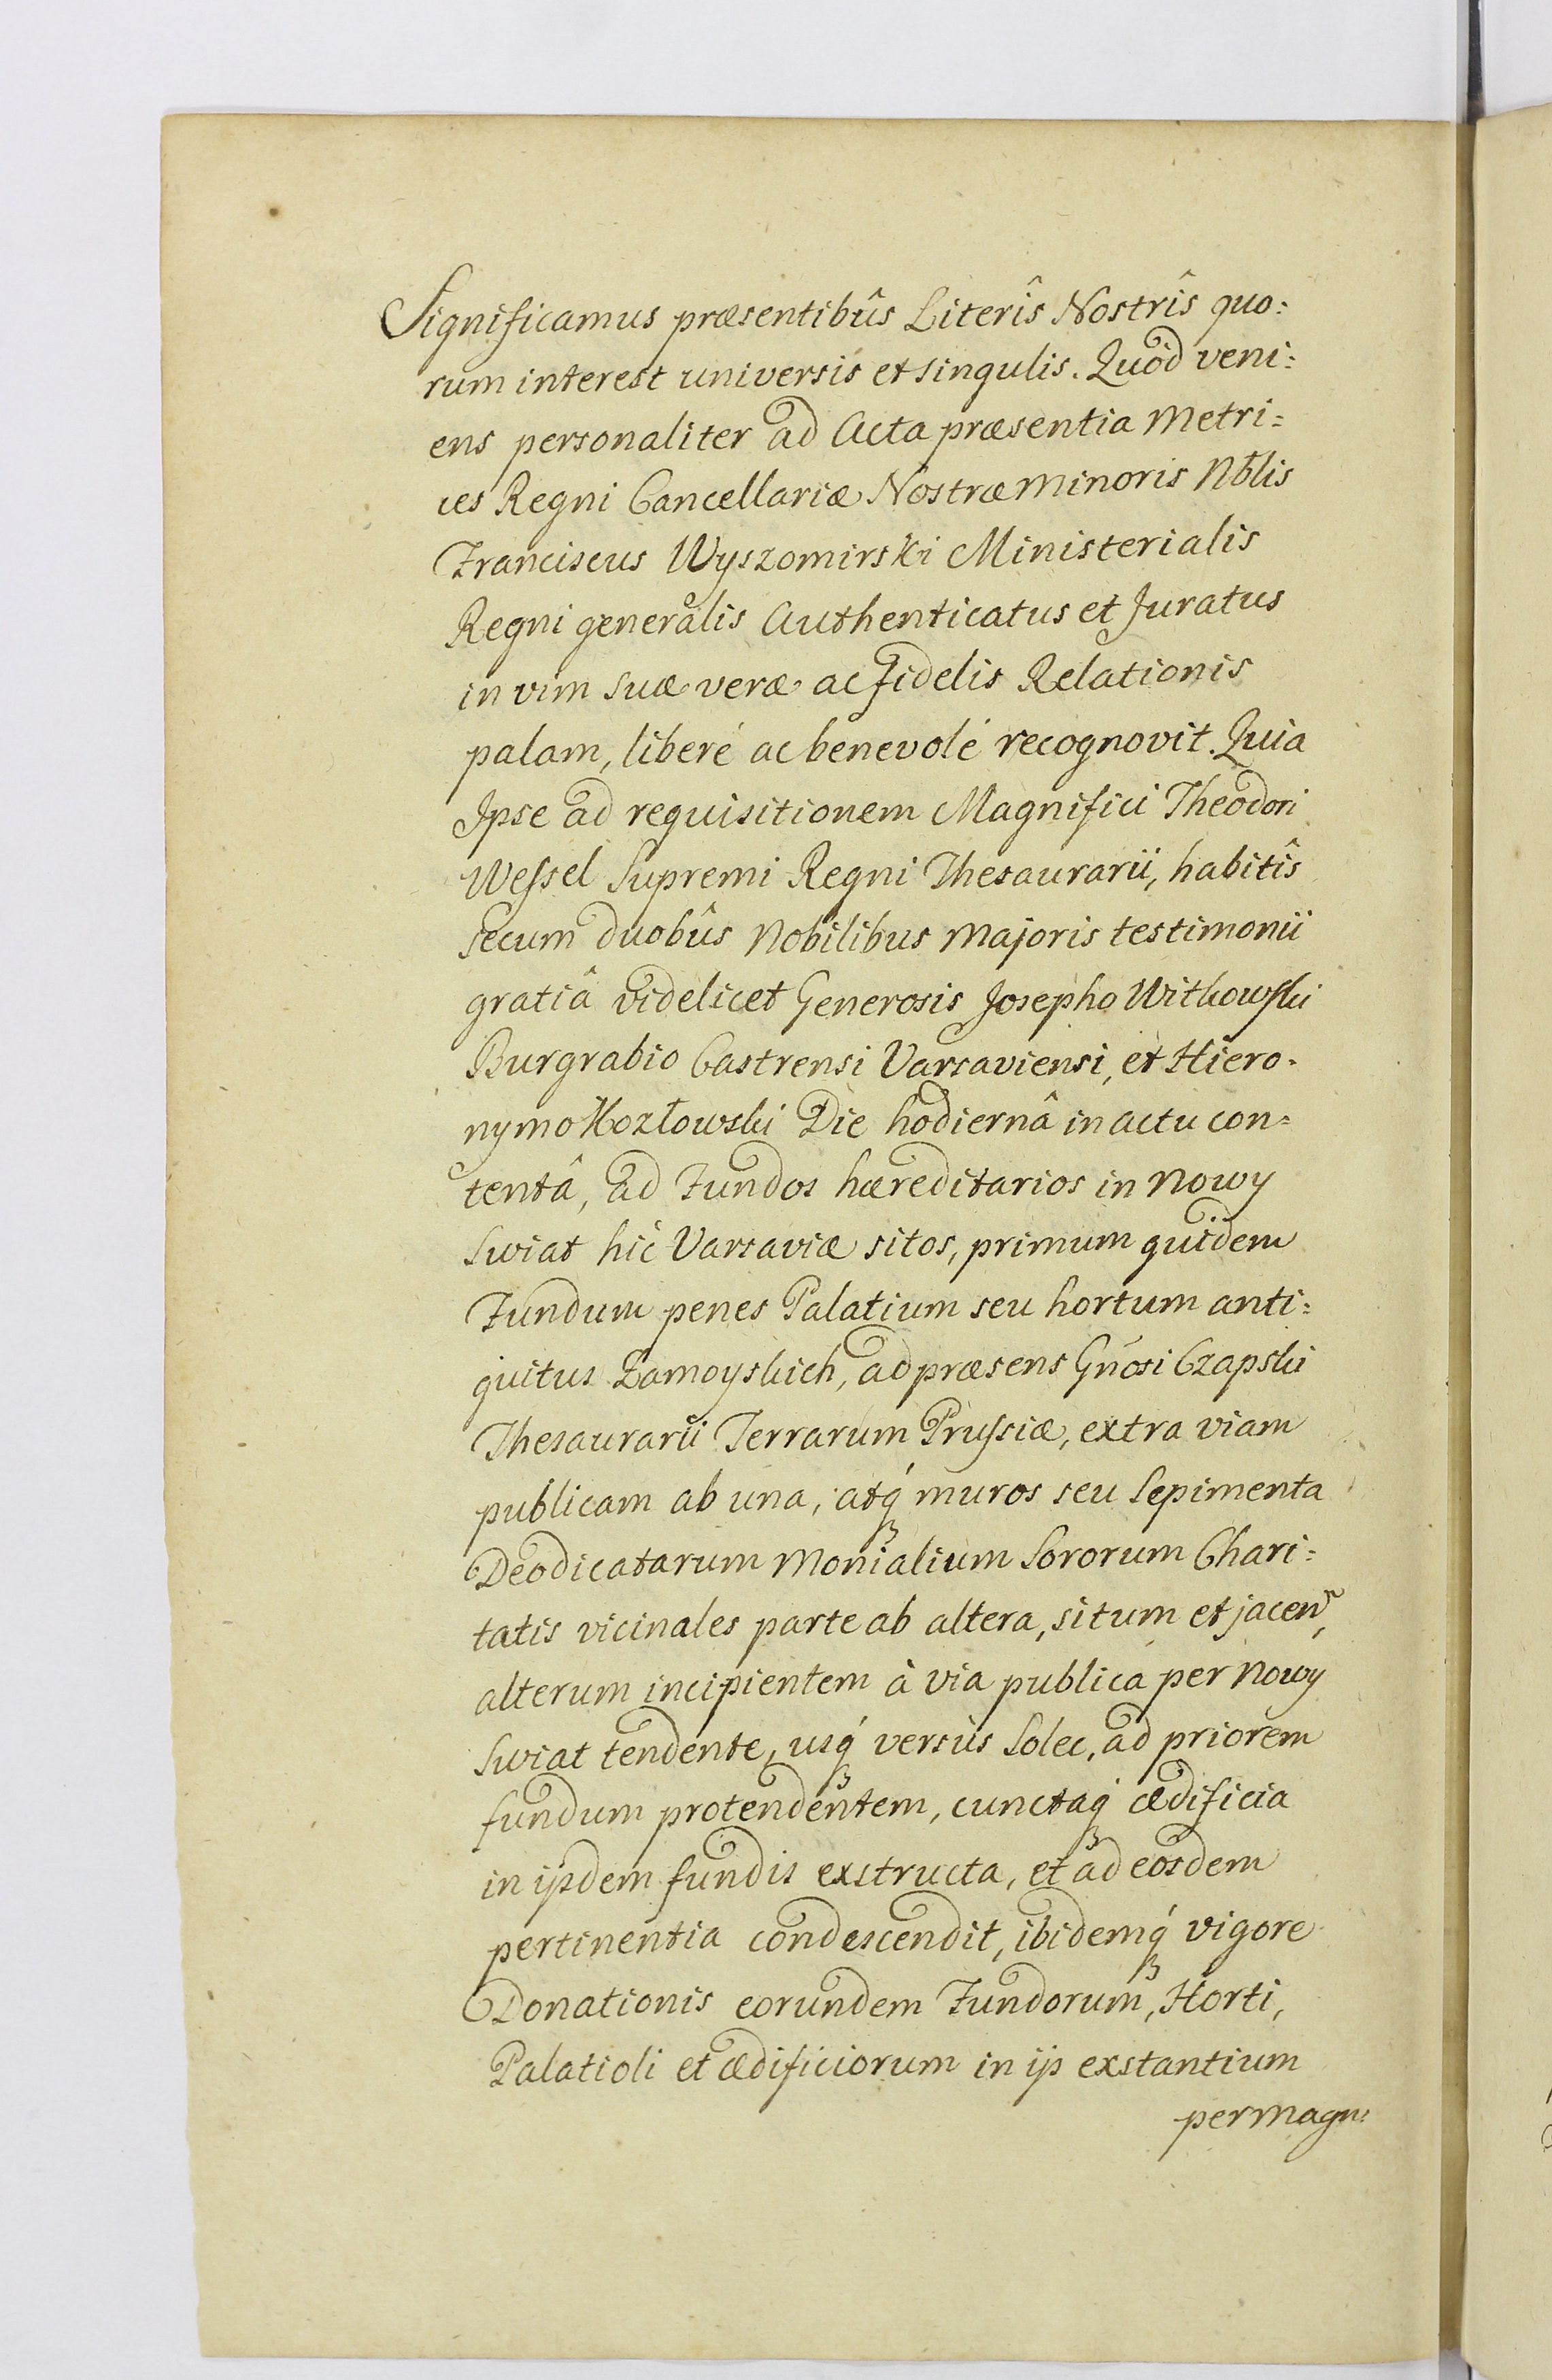 Significamus præsentibûs Literîs Nostrîs quo:
rum interest universis et singulis. Quòd veni:
ens personaliter ad Acta præsentia Metri=
ces Regni Cancellariæ Nostræ minoris Nblis
Franciscus Wyszomirski Ministerialis
Regni generalis Authenticatus et Juratus
in vim suæ veræ ac fidelis Relationis
palam, liberé ac benevolé recognovit. Quia
Ipse ad requisitionem Magnifici Theodori
Wessel Supremi Regni Thesaurarii, habitîs
secum duobûs Nobilibus majoris testimonii
gratiâ videlicet Generosis Josepho Witkowski
Burgrabio Castrensi Varsaviensi, et Hiero-
nymo Kozłowski Die hodiernâ in actu con=
tentâ, ad Fundos hæreditarios in Nowy
Swiat hîc Varsaviæ sitos, primum quidem
Fundum penes Palatium seu hortum anti:
quitus Zamoyskich, ad præsens Gnosi Czapski
Thesaurarii Terrarum Prussiæ, extra viam
publicam ab una, atq́ muros seu Sepimenta
Deodicatarum Monialium Sororum Chari=
tatis vicinales parte ab altera, situm et jacen,
alterum incipientem à via publica per Nowy
Swiat tendente, usq́ versùs Solec, ad priorem
fundum protendentem, cunctaq́ ædificia
in ijsdem fundis exstructa, et ad eosdem
pertinentia condescendit, ibidemq́ vigore
Donationis eorundem Fundorum, Horti,
Palatioli et ædificiorum in ijs exstantium
per Magn: